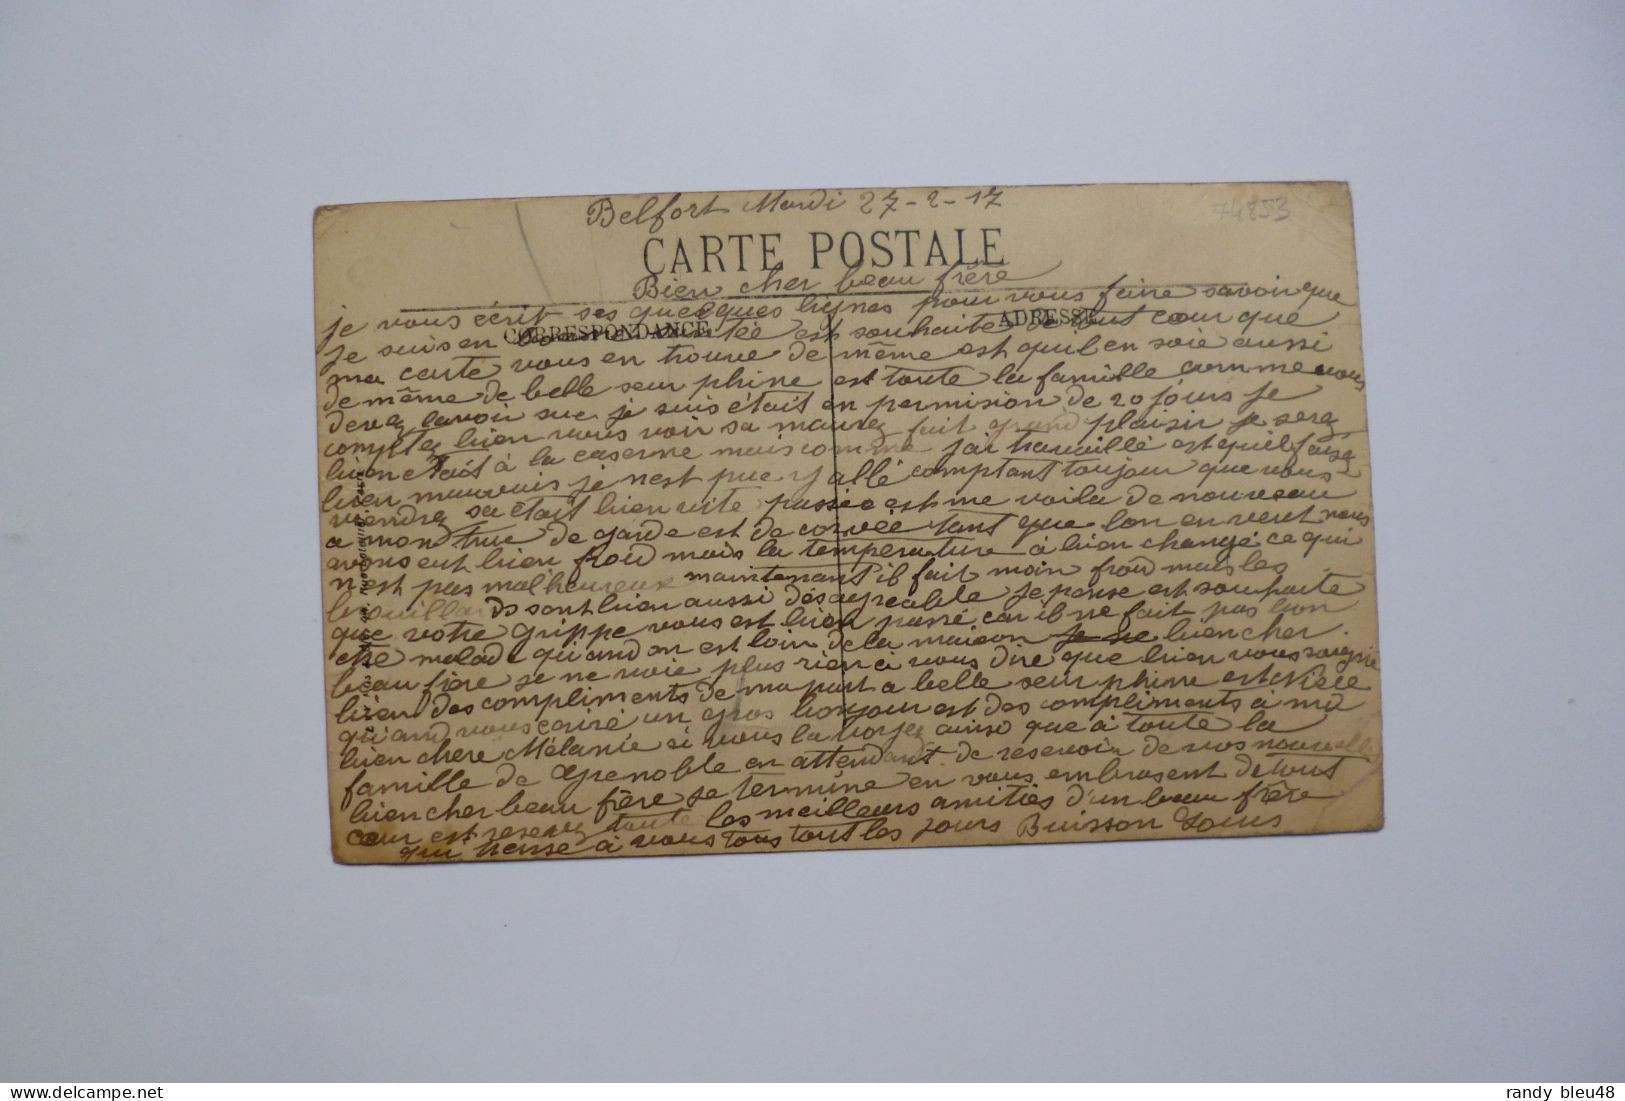 Belfort Mardi 27-2-17
74853
CARTE POSTALE
Bien cher beau frère
je vous écrit ses quelques lignes pour vous faire savoir que
CORRESPONDANCE
ADRESSE
je suis en bonne santée est souhaite de tout cœur que
ma carte vous en trouve de même est qu'il en soie aussi
de même de belle seur phine est toute la famille comme vous
devez lavoir sue je suis était en permision de 20 jours je
comptez bien vous voir sa maurez fait grand plaisir je serez
bien était à la caserne mais comme jai travaillé est quil faisez
bien mauvais je nest pue y allé comptant toujour que vous
viendrez sa était bien vite passée est me voila de nouveau
a mon truc de garde est de corvée tant que lon en veut nous
avons eut bien froid mais la température à bien changé ce qui
n'est pas malheureux maintenant il fait moin froid mais les
brouillards sont bien aussi désagréable je pense est souhaite
que votre grippe vous est bien passé car il ne fait pas bon
etre malade quand on est loin de la maison je ne bien cher
beau frère je ne voie plus rien à vous dire que bien vous soigné
bien des compliments de ma part a belle seur phine est nièce
quand vous écriré un gros bonjour est des compliments à ma
bien chere Mélanie si vous la voyez ainsi que à toute la
famille de Grenoble en attendant de réservoir de vos nouvelles
bien cher beau frère je termine en vous embrasent de tout
cœur est resevez toute les meilleurs amitiés d'un beau frère
qui pense à vous tous tout les jours Buisson Louis
randy bleu48